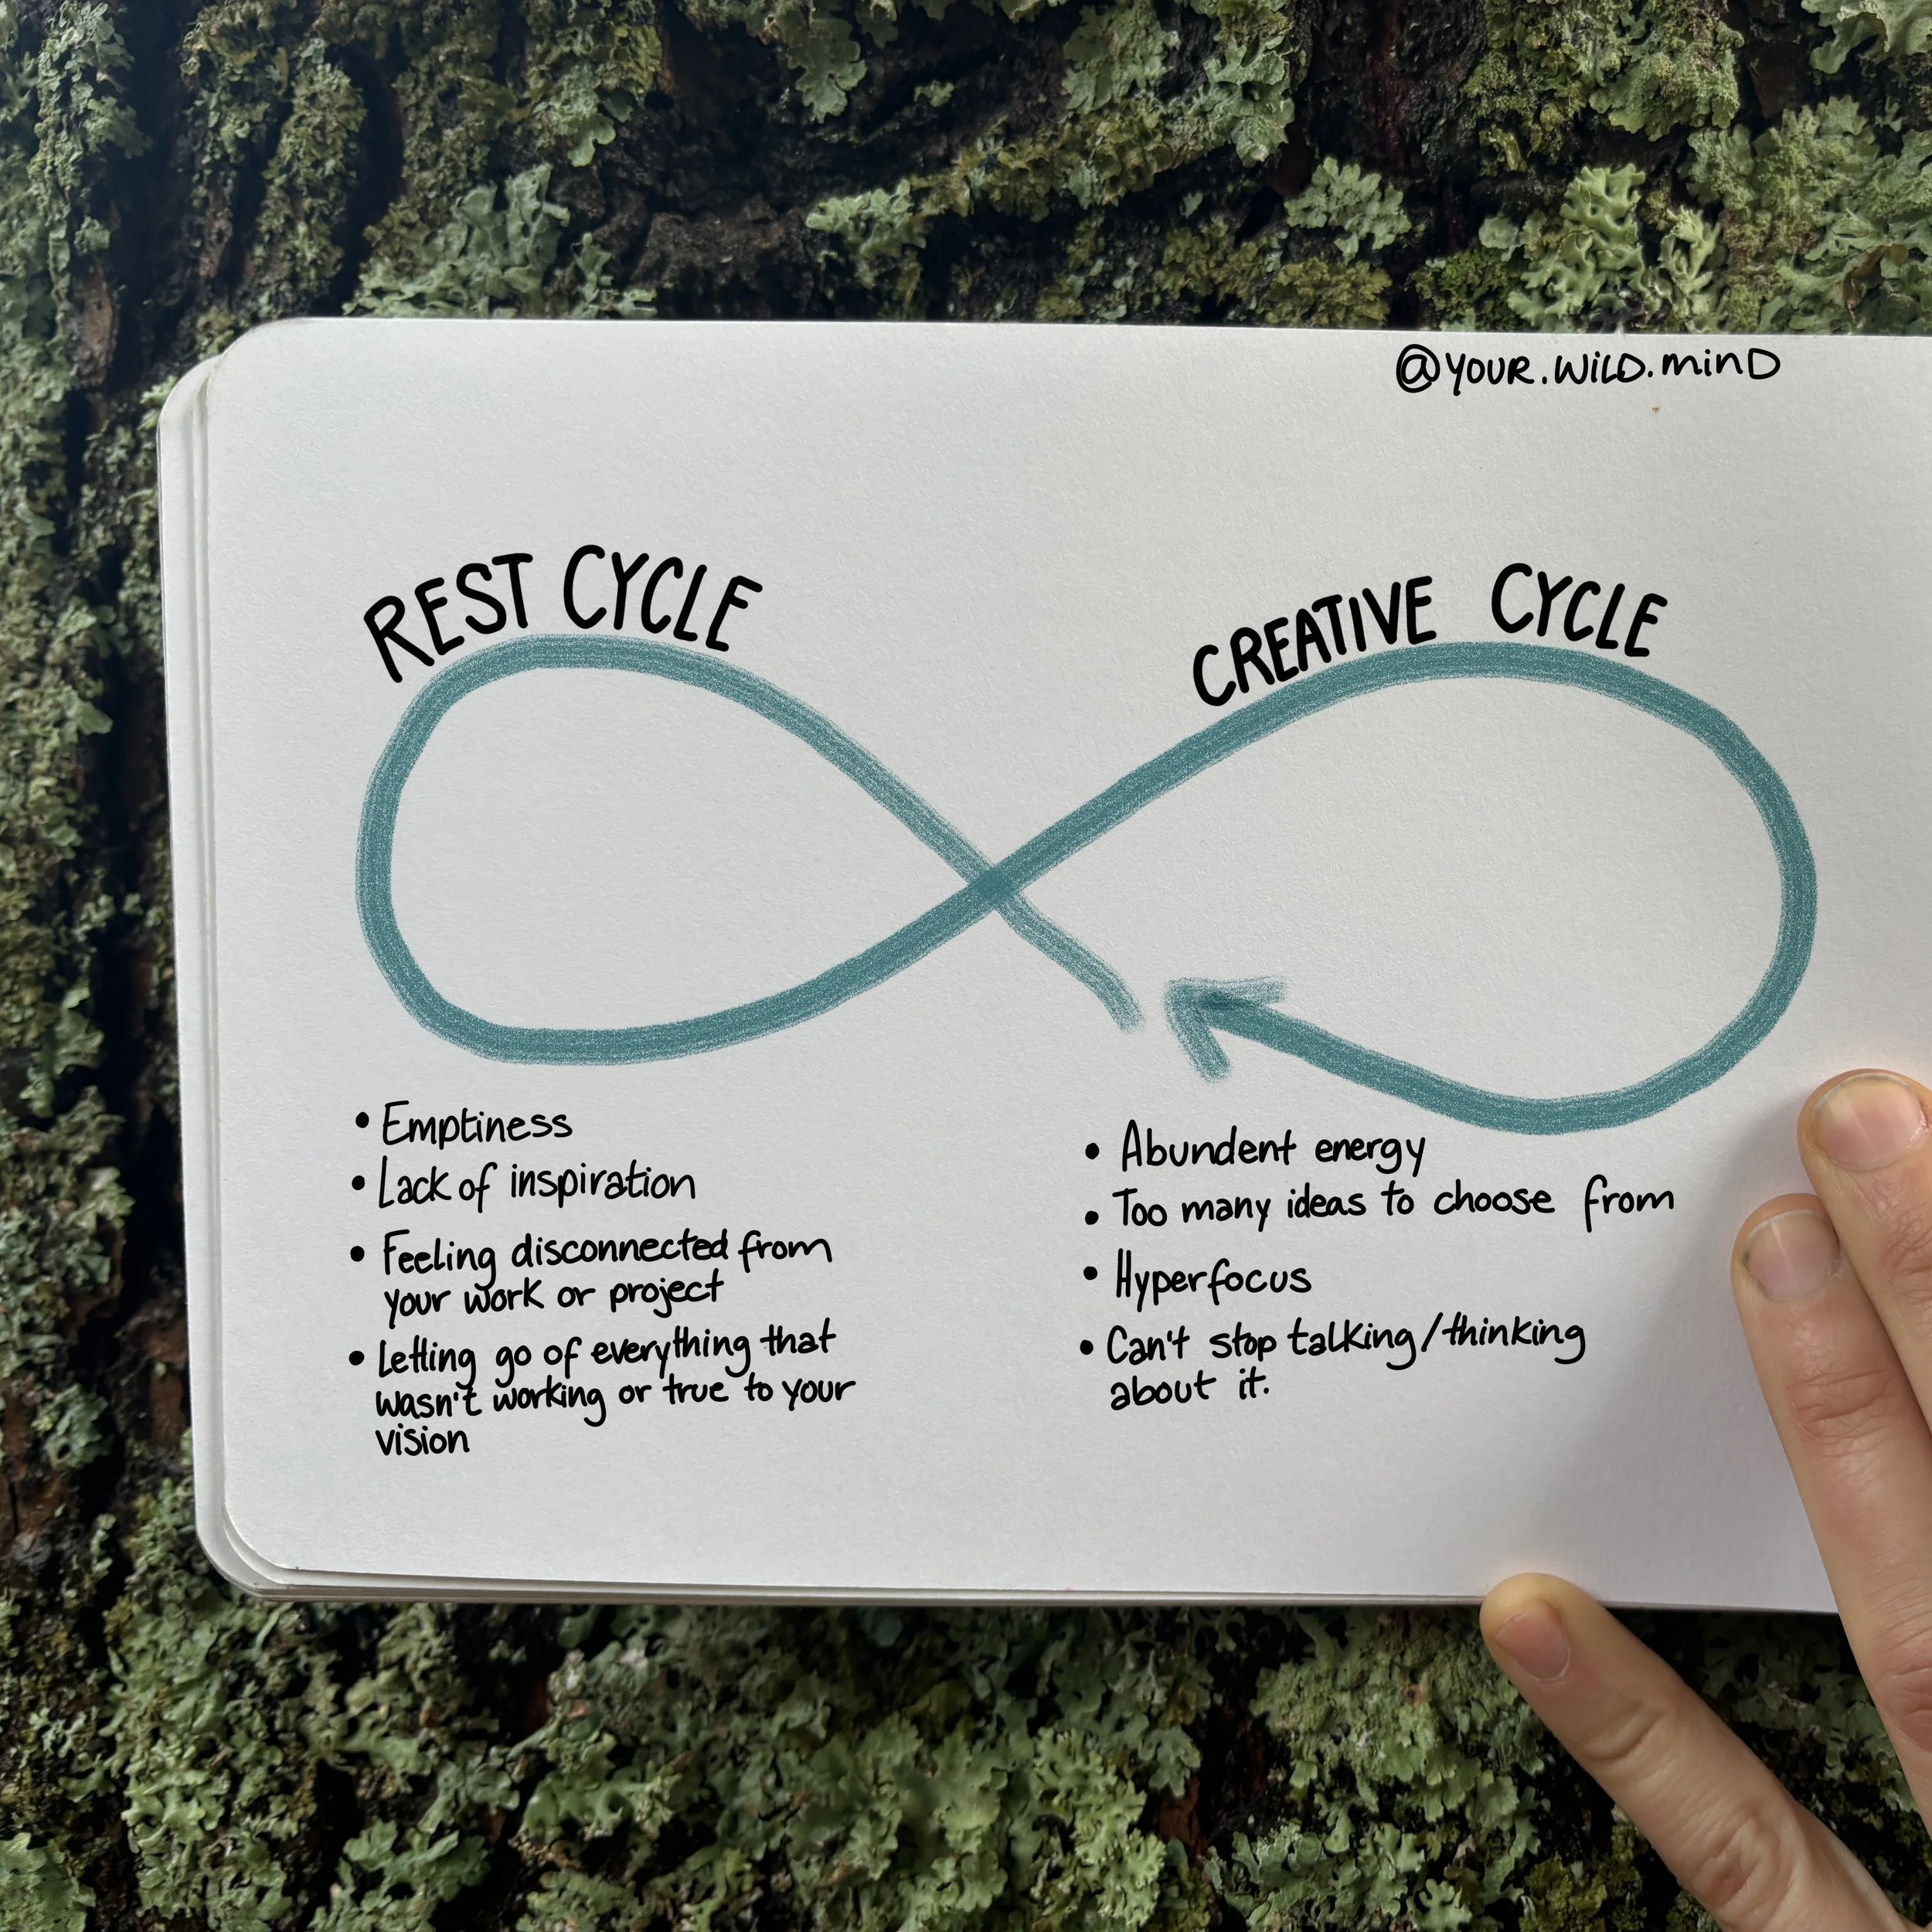 @YOUR.WILD.MIND
REST CYCLE
CREATIVE CYCLE
• Emptiness
• Lack of inspiration
• Feeling disconnected from
your work or project
• Letting go of everything that
wasn't working or true to your
vision
• Abundent energy
• Too many ideas to choose from
• Hyperfocus
• Can't stop talking/thinking
about it.